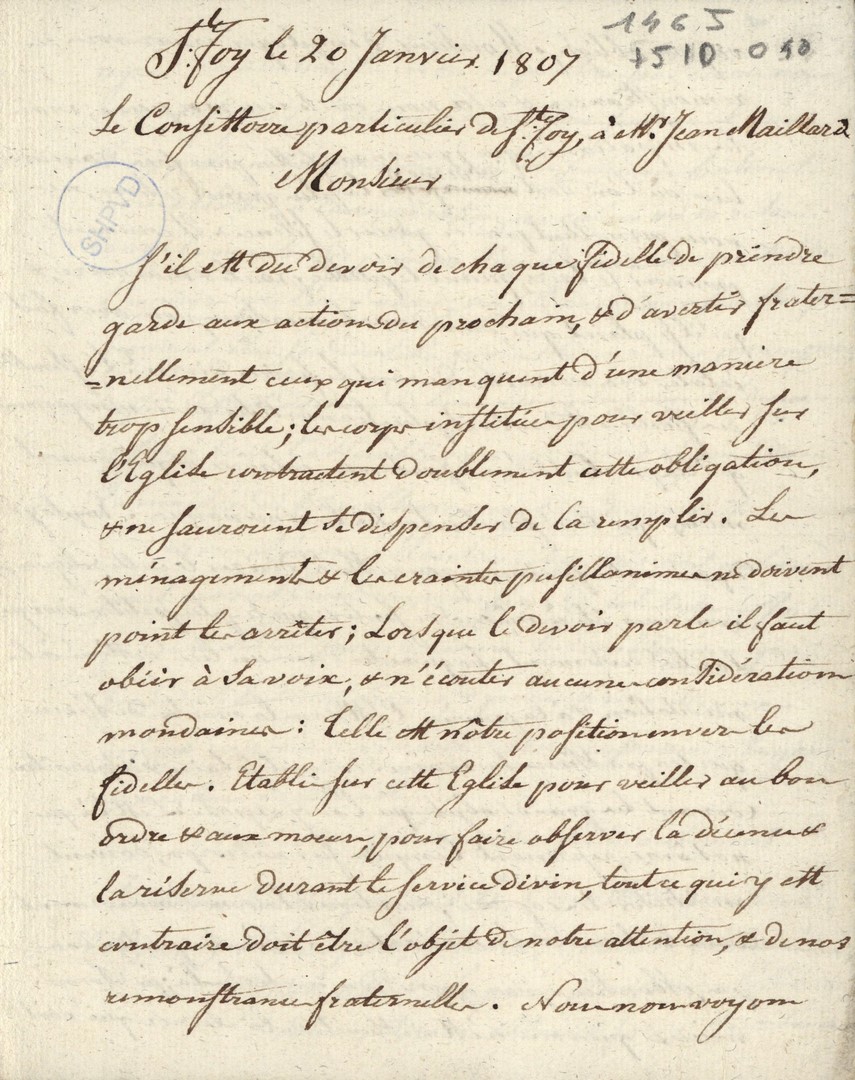 1465
1510 050
S.te Foy le 20 Janvier 1807
Le Consistoire particulier de S.te Foy, à Mr. Jean Maillard
Monsieur
SHPVD
S'il est du devoir de chaque fidelle de prendre
garde aux actions du prochain, & d'avertir frater=
=nellement ceux qui manquent d'une manière
trop sensible; les corps institués pour veiller sur
l'Eglise contractent doublement cette obligation,
& ne sauroient se dispenser de la remplir. Les
ménagements & les craintes pusillanimes ne doivent
point les arrêter; Lorsque le devoir parle il faut
obéir à sa voix, & n'écouter aucunes considérations
mondaines: telle est nôtre position envers les
fidelles. Etablis sur cette Eglise pour veiller au bon
ordre & aux moeurs, pour faire observer la décence &
la réserve durant le service divin, tout ce qui y est
contraire doit être l'objet de notre attention, & de nos
remonstrances fraternelles. Nous nous voyons